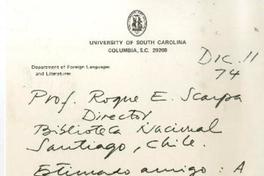 UNIVERSITY OF SOUTH CAROLINA
COLUMBIA, S.C. 29208
Dic. 11
74
Department of Foreign Languages
and Literatures
Prof. Roque E. Scarpa
Director
Biblioteca Nacional
Santiago, Chile.
Estimado amigo: A